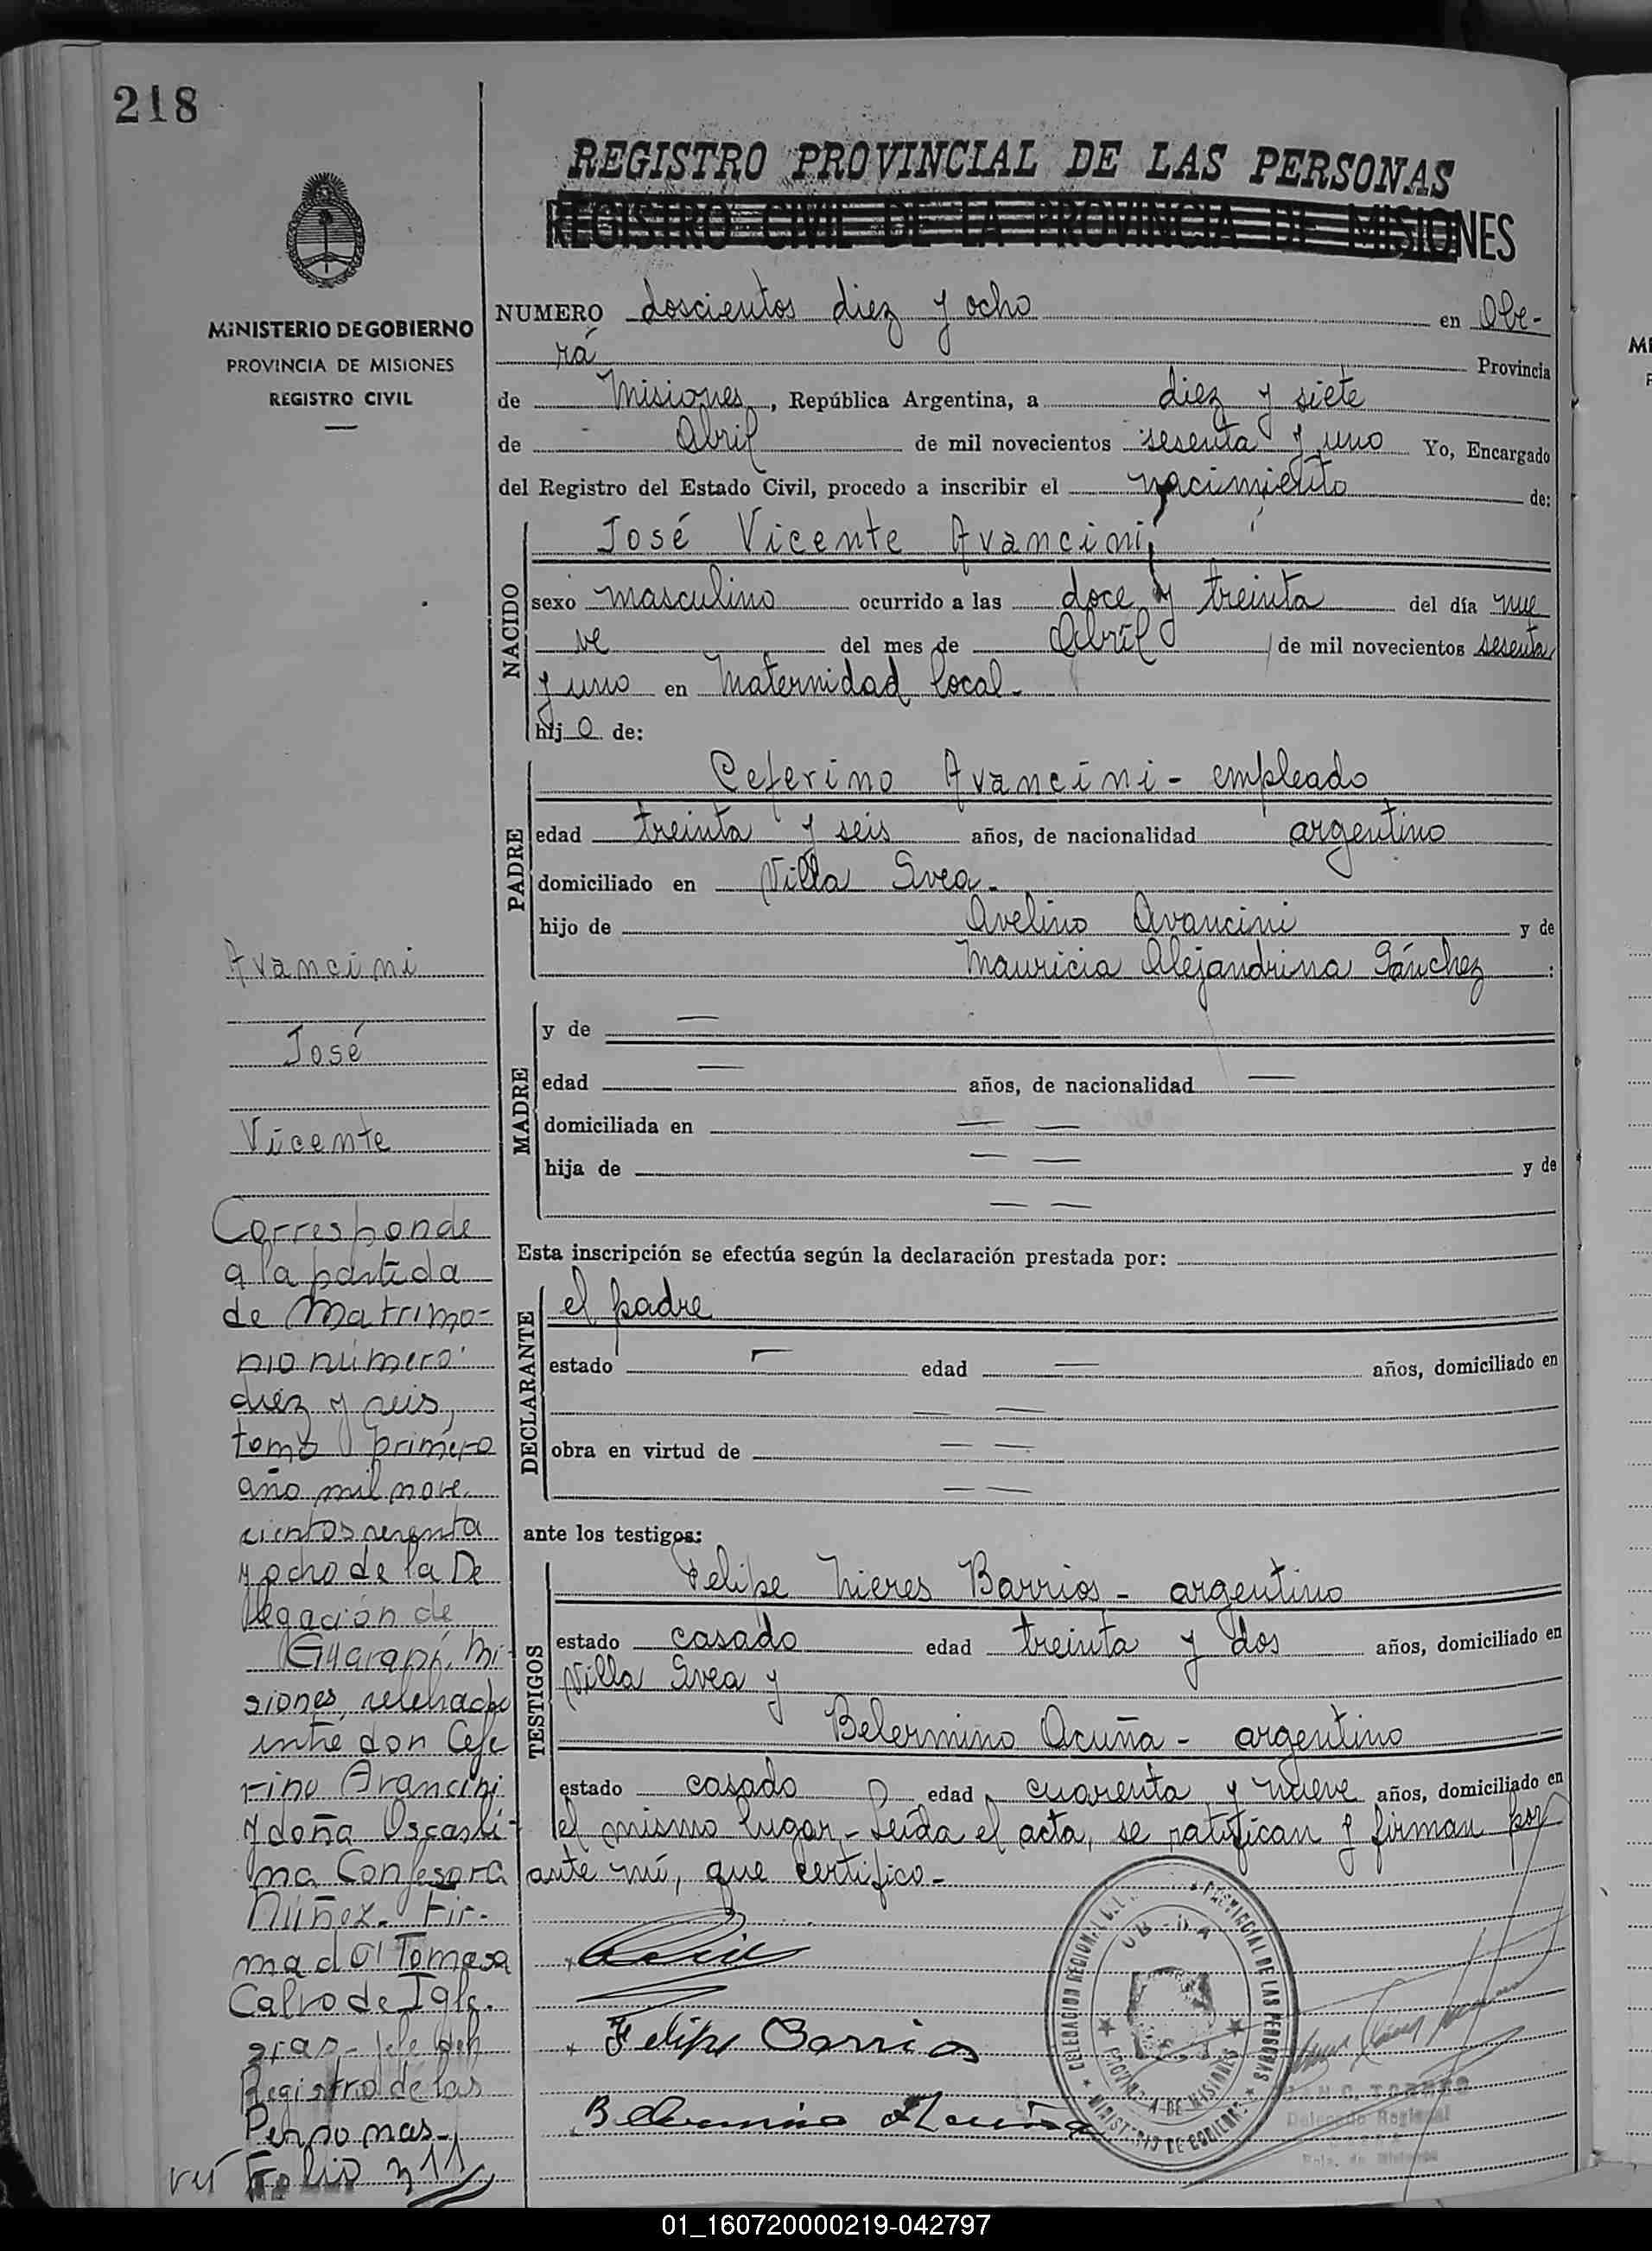 218
REGISTRO PROVINCIAL DE LAS PERSONAS
REGISTRO CIVIL DE LA PROVINCIA DE MISIONES
MINISTERIO DE GOBIERNO
PROVINCIA DE MISIONES
REGISTRO CIVIL
NUMERO doscientos diez y ocho en Obe-
rá Provincia
de Misiones, República Argentina, a diez y siete
de Abril de mil novecientos sesenta y uno Yo, Encargado
del Registro del Estado Civil, procedo a inscribir el nacimiento de:
NACIDO
José Vicente Avancini,
sexo masculino ocurrido a las doce y treinta del día nue
ve del mes de Abril de mil novecientos sesenta
y uno en Maternidad local-
hij o de:
PADRE
Ceferino Avancini - empleado
edad treinta y seis años, de nacionalidad argentino
domiciliado en Villa Svea-
hijo de Avelino Avancini y de
Mauricia Alejandrina Sánchez :
MADRE
y de —
edad — años, de nacionalidad —
domiciliada en — —
hija de — — y de
— —
Esta inscripción se efectúa según la declaración prestada por:
DECLARANTE
el padre
estado — edad — años, domiciliado en
— —
obra en virtud de — —
— —
ante los testigos:
TESTIGOS
Felipe Nieres Barrios - argentino
estado casado edad treinta y dos años, domiciliado en
Villa Svea y
Belermino Acuña - argentino
estado casado edad cuarenta y nueve años, domiciliado en
el mismo lugar - Leída el acta, se ratifican y firman por
ante mí, que certifico-
Felipe Barrios
Belermino Acuña
DELEGACION REGIONAL PROVINCIAL DE LAS PERSONAS
PROVINCIA DE MISIONES
MINISTERIO DE GOBIERNO
Delegado Regional
Avancini
José
Vicente
Corresponde
a la partida
de Matrimo-
nio número
diez y seis,
tomo primero
año mil nove-
cientos sesenta
y ocho de la De
legación de
Guaraní, Mi-
siones, celebrado
entre don Cefe
rino Avancini
y doña Oscasli-
na Confesora
Núñez. Fir-
mado: Tomasa
Calvo de Igle-
sias - Jefe del
Registro de las
Personas-
Folio 311
01_160720000219-042797